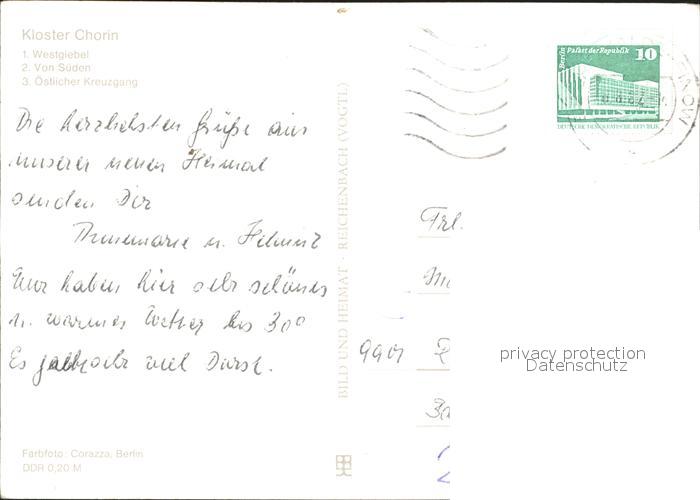 Kloster Chorin
1. Westgiebel
2. Von Süden
3. Östlicher Kreuzgang
Die herzlichsten Grüße aus
unserer neuen Heimat
senden Dir
Annemarie u. Helmut
Wir haben hier sehr schönes
u. warmes Wetter bis 30°
Es gibt sehr viel Durst.
Farbfoto: Corazza, Berlin
DDR 0,20 M
BILD UND HEIMAT · REICHENBACH (VOGTL)
Berlin Palast der Republik 10
DEUTSCHE DEMOKRATISCHE REPUBLIK
Frl.
9901
privacy protection
Datenschutz